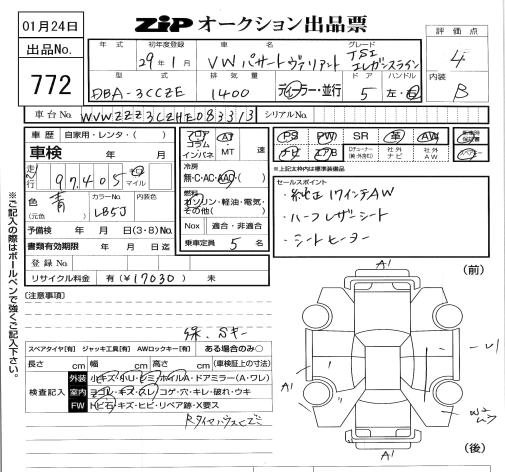 01月24日
出品No.
772
ZIP オークション出品票
評価点
4
内装
B
年式 初年度登録 車名 グレード
29年1月 VW パサートヴァリアント TSI エレガンスライン
型式 排気量 ドア ハンドル
DBA-3CCZE 1400 ディーラー・並行 5 左・右
車台No. WVWZZZ3CZHE083313 シリアルNo.
車歴 自家用・レンタ・( )
車検 年 月
走行 97,405 マイル
色 青 LB5J 内装色
(元色)
予備検 年 月 日(3・8)No.
書類有効期限 年 月 日迄
登録No.
リサイクル料金 有(¥17030) 未
フロア AT
コラム
インパネ MT 速
無・C・AC・AAC
燃料
ガソリン・軽油・電気・
その他( )
Nox 適合・非適合
乗車定員 5名
PS PW SR 革 AW
ナビ
社外AW
※上記太枠内は標準装備品
セールスポイント
・純正17インチAW
・ハーフレザーシート
・シートヒーター
※ご記入の際はボールペンで強くご記入下さい。
[注意事項]
録、Sキー
スペアタイヤ[有] ジャッキ工具[有] AWロックキー[有] ある場合のみ○
長さ cm 幅 cm 高さ cm (車検証上の寸法)
検査記入
外装 小キズ・小U・ヒミ・ホイルA・ドアミラー(A・ワレ)
室内 ヨゴレ・キズ・スレ・コゲ・穴・キレ・破れ・ウキ
FW トビ石・キズ・ヒビ・リペア跡・X要ス
RタイヤハウスCごご
(前)
A1
A1
A1
(後)